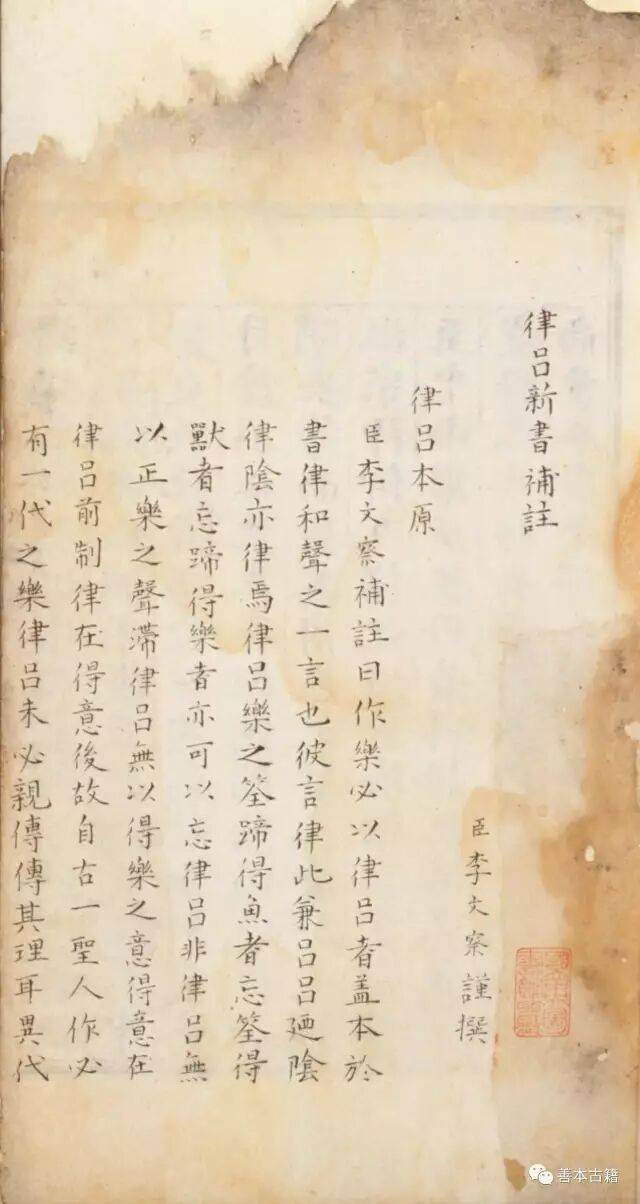 律呂新書補註
臣李文察謹撰
律呂本原
臣李文察補註曰作樂必以律呂者盖本於
書律和聲之一言也彼言律此兼呂呂廼陰
律陰亦律焉律呂樂之筌蹄得魚者忘筌得
獸者忘蹄得樂者亦可以忘律呂非律呂無
以正樂之聲滯律呂無以得樂之意得意在
律呂前制律在得意後故自古一聖人作必
有一代之樂律呂未必親傳傳其理耳異代
善本古籍